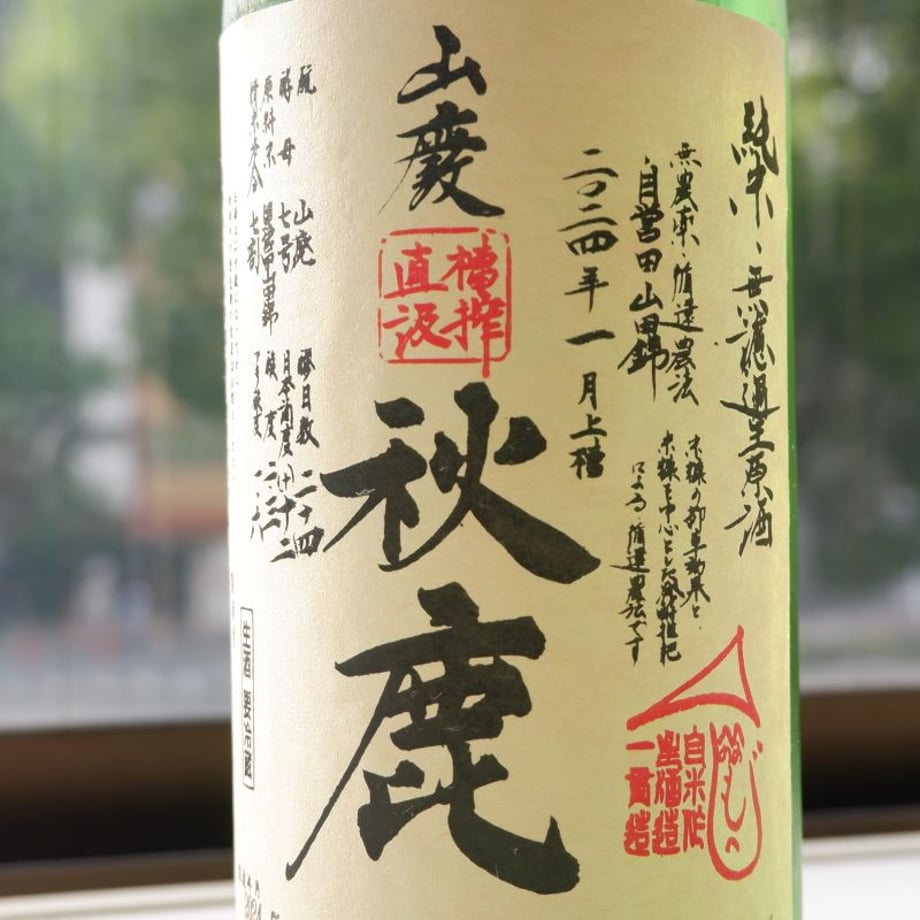 純米、無濾過生原酒
無農薬・循環農法
自営田山田錦
米糠の抑草効果と、
米糠を中心とした発酵堆肥
による、循環農法です
二〇二四年一月上槽
山廃
槽搾
直汲
秋鹿
酛 山廃
酵母 七号
原料米 自営田山田錦
精米歩合 七割
醪日数 二十四
日本酒度 (+)十二
酸度 二・二
アミノ酸度 一・六
生酒 要冷蔵
自米作
一貫造